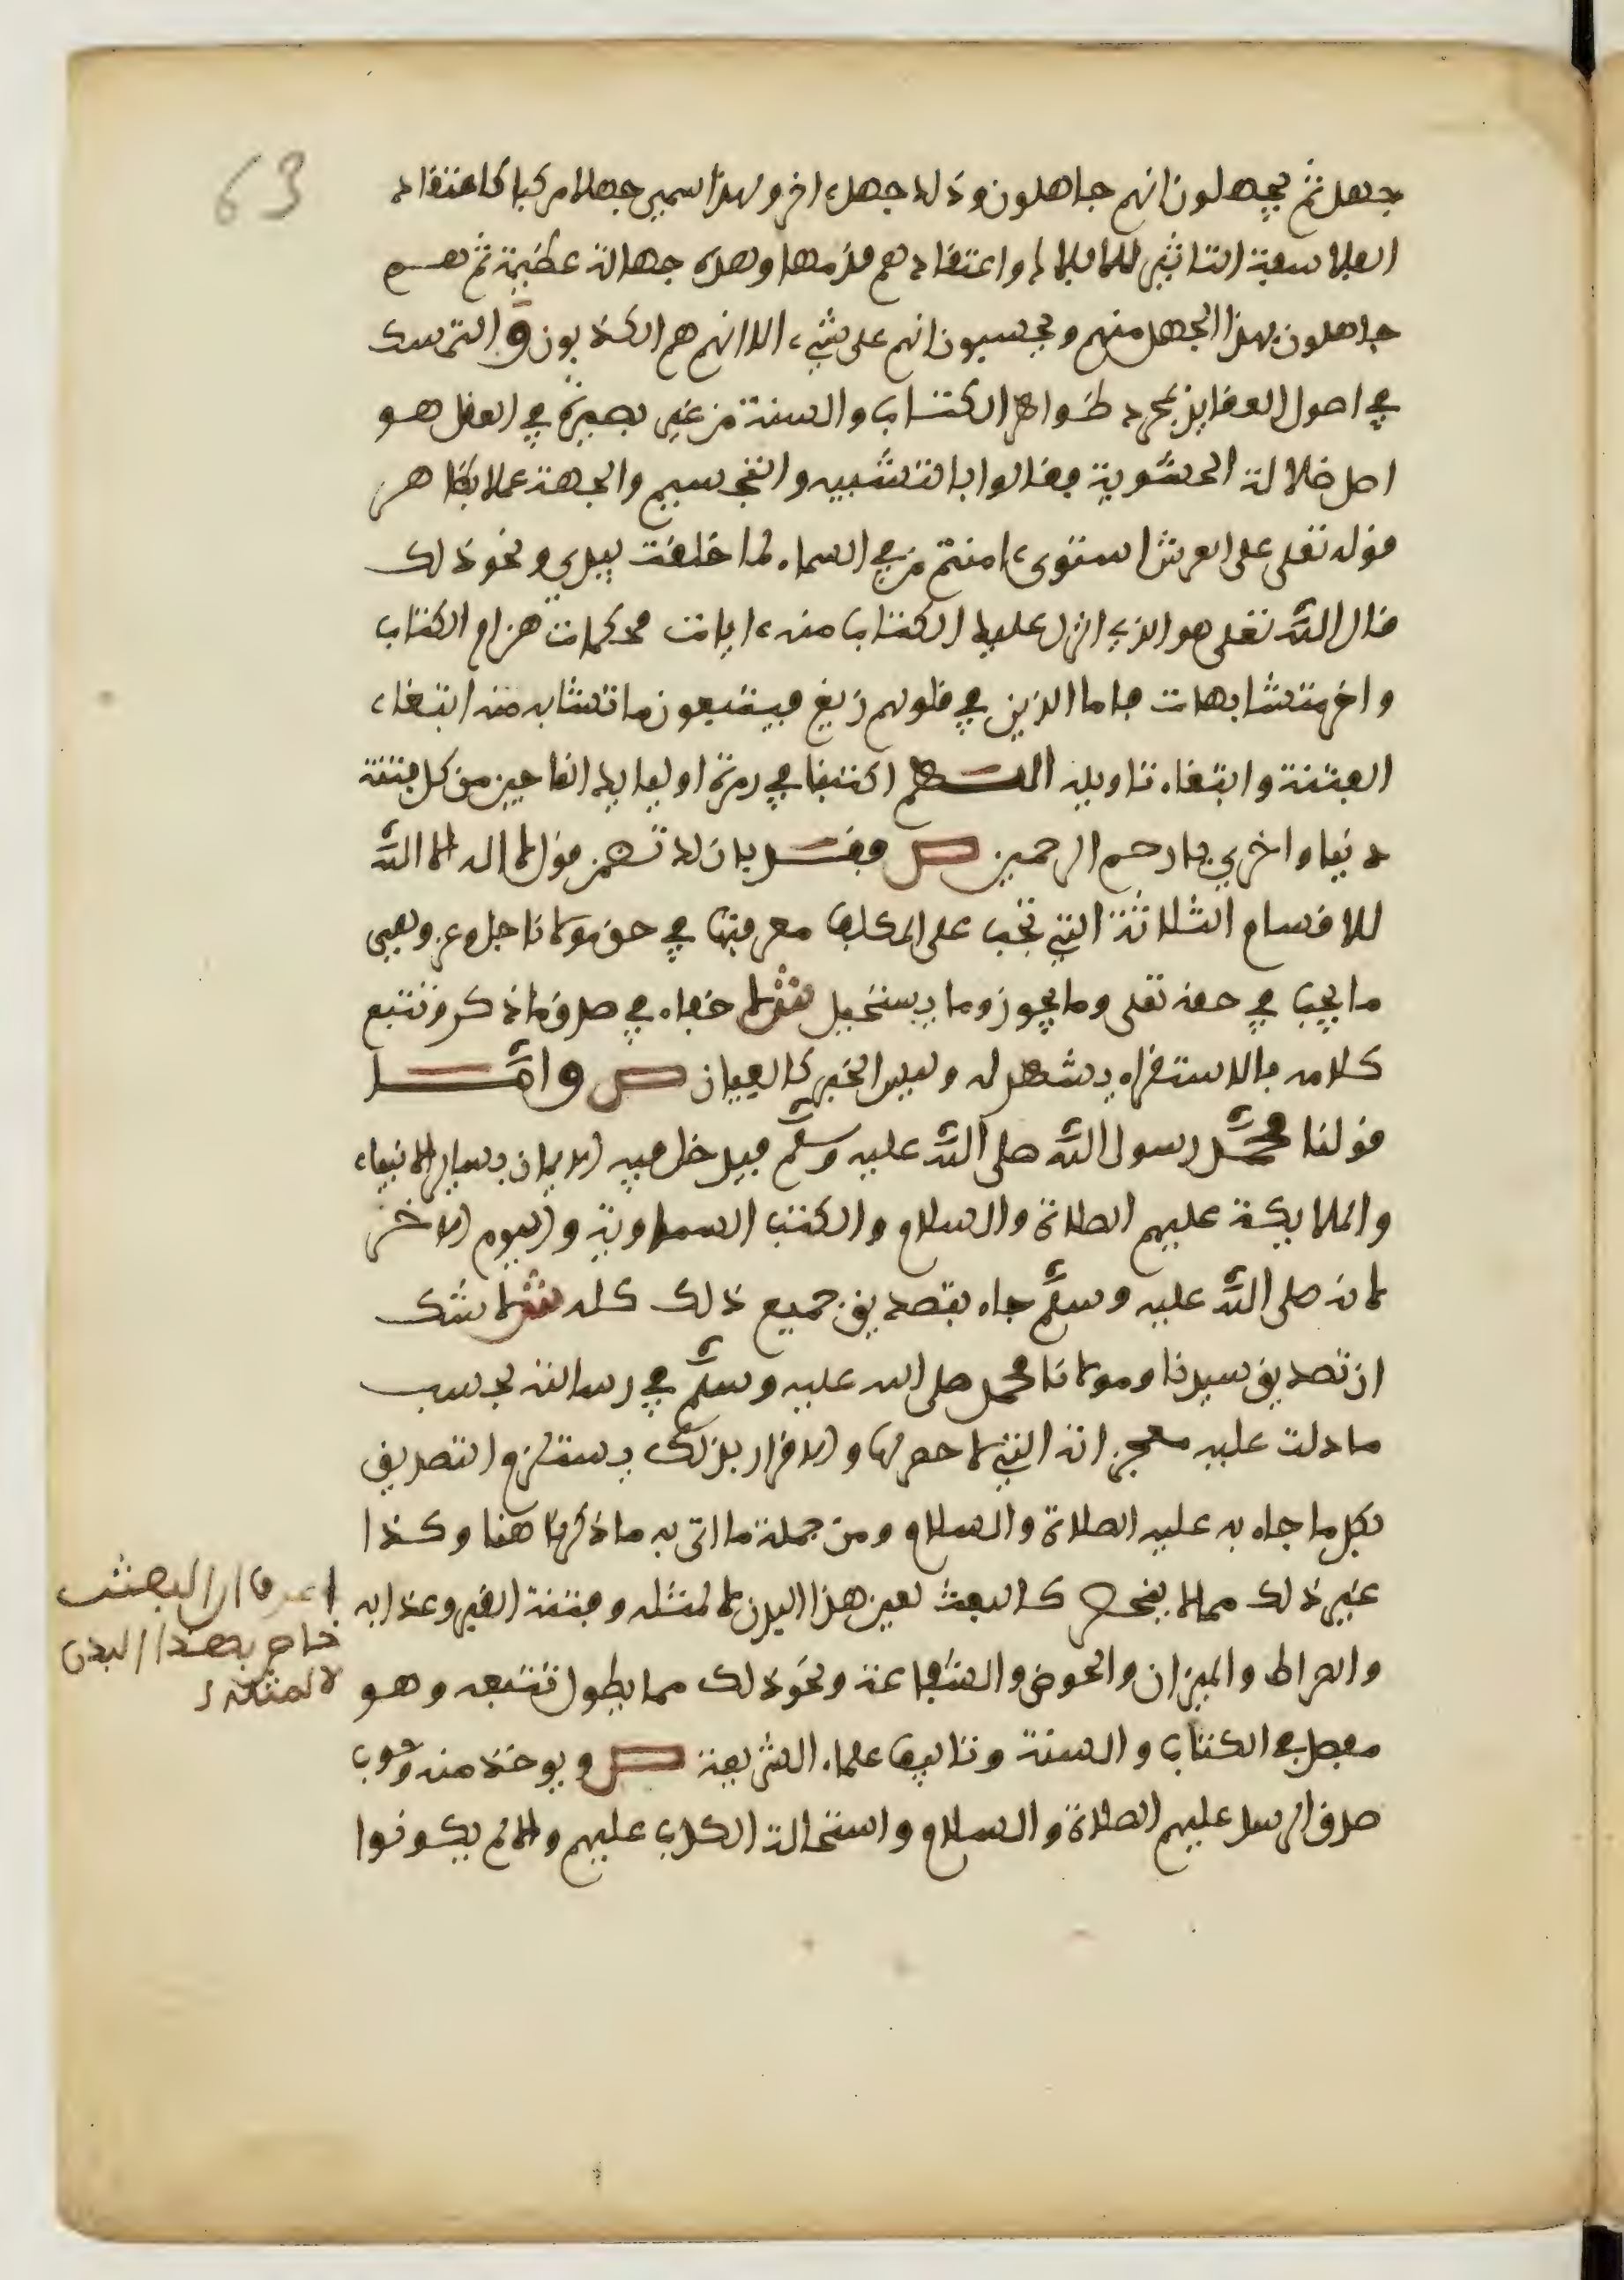 63
جهل ثم يجهلون انهم جاهلون وذلك جهل ءاخر ولهذا سمي جهلا مركبا كاعتقاد
الفلاسفة التاثير للافلاك واعتقادهم قدمها وهذه جهالة عظيمة ثم هم
جاهلون بهذا الجهل منهم ويحسبون انهم على شيء الا انهم هم الكذبون و التمسك
في اصول العقايد بمجرد ظواهر الكتاب والسنة من غير بصيرة في العقل هو
اصل ضلالة الحشوية فقالوا بالتشبيه والتجسيم والجهة عملا بظاهر
قوله تعلى على العرش استوى ءامنتم من في السماء لما خلقت بيدي ونحو ذلك
قال الله تعلى هو الذي انزل عليك الكتاب منه ءايات محكمات هن ام الكتاب
واخر متشابهات فاما الذين في قلوبهم زيغ فيتبعون ما تشابه منه ابتغاء
الفتنة وابتغاء تاويله اللهم اكتبنا في زمرة اوليايك الناجين من كل فتنة
دنيا واخرى يا رحم الرحمين ص فقد بان لك تضمن قول لا اله الا الله
للاقسام الثلاثة التي تجب على المكلف معرفتها في حق مولانا جل وعز وهي
ما يجب في حقه تعلى وما يجوز وما يستحيل ش لا خفاء في صدق ما ذكر وتتبع
كلامه بالاستقراء يشهد له وليس الخبر كالعيان ص واما
قولنا محمد رسول الله صلى الله عليه وسلم فيدخل فيه الايمان بساير الانبياء
والملايكة عليهم الصلاة والسلام والكتب السماوية واليوم الاخر
لانه صلى الله عليه وسلم جاء بتصديق جميع ذلك كله ش لا شك
ان تصديق سيدنا ومولانا محمد صلى الله عليه وسلم في رسالته بحسب
ما دلت عليه معجزاته التي لا حصر لها والاقرار بذلك يستلزم التصديق
بكل ما جاء به عليه الصلاة والسلام ومن جملة ما اتى به ما ذكر هنا وكذا
غير ذلك مما لا ينحصر كالبعث لعين هذا البدن لا لمثله وفتنة القبر وعذابه
والصراط والميزان والحوض والشفاعة ونحو ذلك مما يطول تتبعه وهو
مفصل في الكتاب والسنة وتاليف علماء الشريعة ص ويوخذ منه وجوب
صدق الرسل عليهم الصلاة والسلام واستحالة الكذب عليهم والا لم يكونوا
اعرف ان البعث
خاص بهذا البدن
لا لمثله